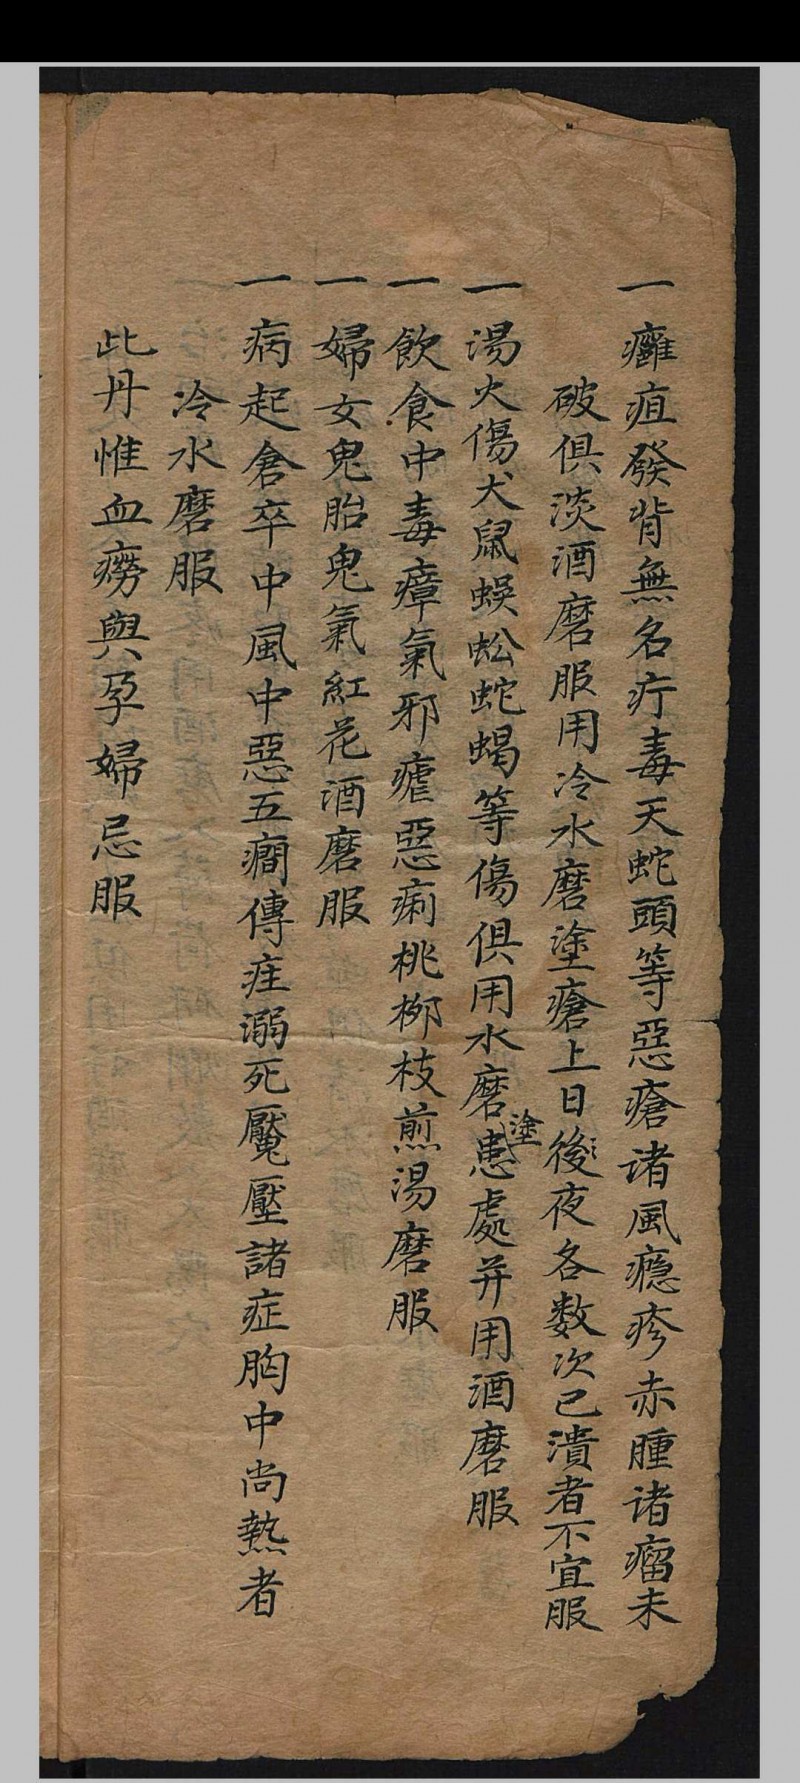 一癰疽發背無名疔毒天蛇頭等惡瘡诸風癮疹赤腫诸瘤未
破俱淡酒磨服用冷水磨塗瘡上日後夜各数次已潰者不宜服
一湯火傷犬鼠蜈蚣蛇蝎等傷俱用水磨塗患處并用酒磨服
一飲食中毒瘴氣邪瘧惡痢桃柳枝煎湯磨服
一婦女鬼胎鬼氣紅花酒磨服
一病起倉卒中風中惡五癎傳疰溺死魘壓諸症胸中尚熱者
冷水磨服
此丹惟血癆與孕婦忌服